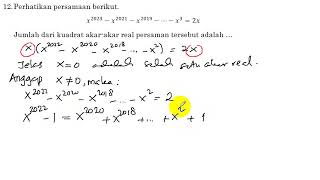 12. Perhatikan persamaan berikut.
x²⁰²³ − x²⁰²¹ − x²⁰¹⁹ − ... − x³ = 2x
Jumlah dari kuadrat akar-akar real persaman tersebut adalah ...
x(x²⁰²² − x²⁰²⁰ − x²⁰¹⁸ − ... − x²) = 2x
Jelas x=0 adalah salah satu akar real.
Anggap x ≠ 0, maka:
x²⁰²² − x²⁰²⁰ − x²⁰¹⁸ − ... − x² = 2
x²⁰²² − 1 = x²⁰²⁰ + x²⁰¹⁸ + ... + x² + 1